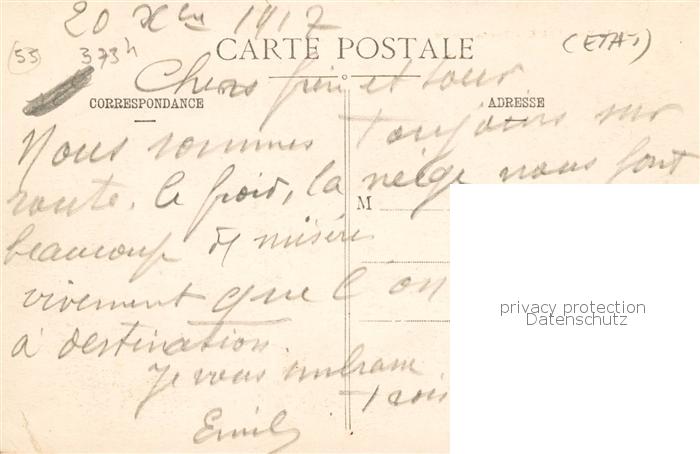 20 Xbre 1917
(55) 373h CARTE POSTALE (ETAT)
Chers frère et sœur
CORRESPONDANCE ADRESSE
Nous sommes toujours sur
route. le froid, la neige nous font
M
beaucoup de misère
vivement que l'on
privacy protection
Datenschutz
à destination.
Je vous embrasse
trois
Emile